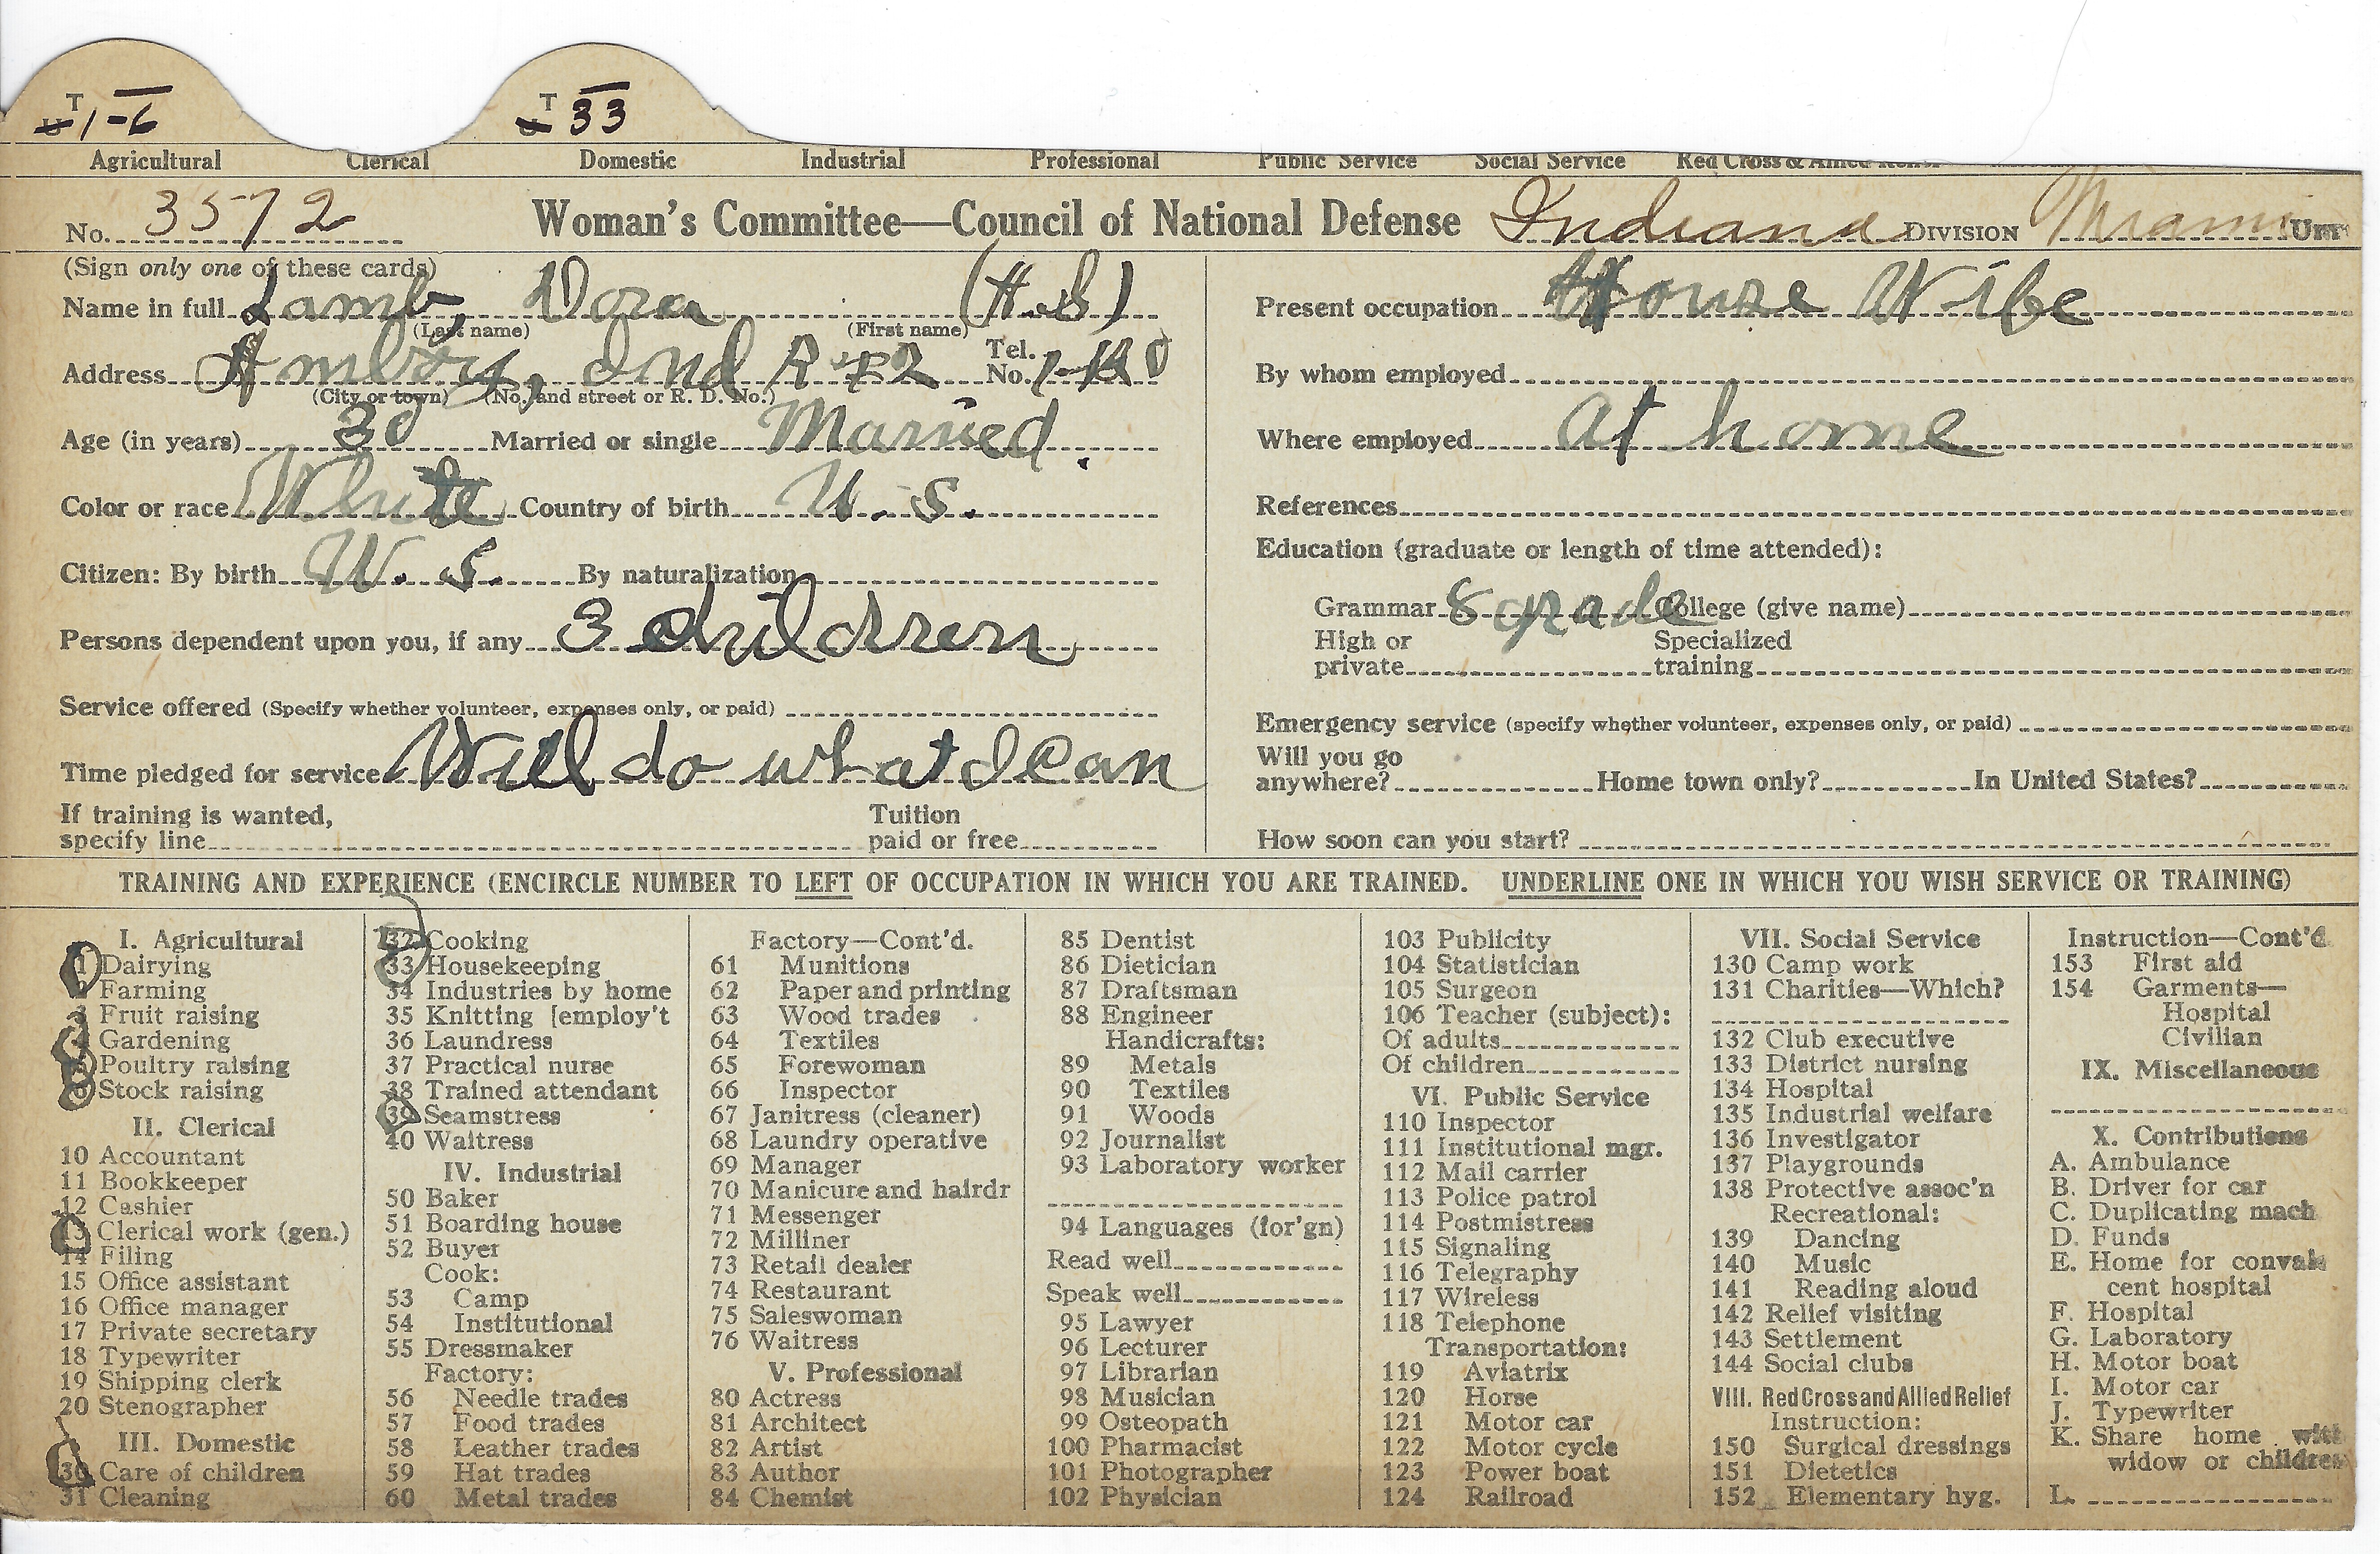 T 1-6 T 33
Agricultural Clerical Domestic Industrial Professional Public Service Social Service Red Cross & Allied Relief
No. 3572 Woman's Committee—Council of National Defense Indiana DIVISION Miami UNIT
(Sign only one of these cards)
Name in full Lamb, Dora (H.S)
(Last name) (First name)
Address Amboy, Ind R #2 Tel. No.
(City or town) (No. and street or R. D. No.)
Age (in years) 30 Married or single Married.
Color or race White Country of birth U.S.
Citizen: By birth U.S. By naturalization
Persons dependent upon you, if any 3 children
Service offered (Specify whether volunteer, expenses only, or paid)
Time pledged for service Will do what I can
If training is wanted, specify line Tuition paid or free
Present occupation House Wife
By whom employed
Where employed At home
References
Education (graduate or length of time attended):
Grammar 8 grade College (give name)
High or private Specialized training
Emergency service (specify whether volunteer, expenses only, or paid)
Will you go anywhere? Home town only? In United States?
How soon can you start?
TRAINING AND EXPERIENCE (ENCIRCLE NUMBER TO LEFT OF OCCUPATION IN WHICH YOU ARE TRAINED. UNDERLINE ONE IN WHICH YOU WISH SERVICE OR TRAINING)
I. Agricultural
1 Dairying
2 Farming
3 Fruit raising
4 Gardening
5 Poultry raising
6 Stock raising
II. Clerical
10 Accountant
11 Bookkeeper
12 Cashier
13 Clerical work (gen.)
14 Filing
15 Office assistant
16 Office manager
17 Private secretary
18 Typewriter
19 Shipping clerk
20 Stenographer
III. Domestic
30 Care of children
31 Cleaning
32 Cooking
33 Housekeeping
34 Industries by home
35 Knitting [employ't
36 Laundress
37 Practical nurse
38 Trained attendant
39 Seamstress
40 Waitress
IV. Industrial
50 Baker
51 Boarding house
52 Buyer
Cook:
53 Camp
54 Institutional
55 Dressmaker
Factory:
56 Needle trades
57 Food trades
58 Leather trades
59 Hat trades
60 Metal trades
Factory—Cont'd.
61 Munitions
62 Paper and printing
63 Wood trades
64 Textiles
65 Forewoman
66 Inspector
67 Janitress (cleaner)
68 Laundry operative
69 Manager
70 Manicure and hairdr
71 Messenger
72 Milliner
73 Retail dealer
74 Restaurant
75 Saleswoman
76 Waitress
V. Professional
80 Actress
81 Architect
82 Artist
83 Author
84 Chemist
85 Dentist
86 Dietician
87 Draftsman
88 Engineer
Handicrafts:
89 Metals
90 Textiles
91 Woods
92 Journalist
93 Laboratory worker
94 Languages (for'gn)
Read well
Speak well
95 Lawyer
96 Lecturer
97 Librarian
98 Musician
99 Osteopath
100 Pharmacist
101 Photographer
102 Physician
103 Publicity
104 Statistician
105 Surgeon
106 Teacher (subject):
Of adults
Of children
VI. Public Service
110 Inspector
111 Institutional mgr.
112 Mail carrier
113 Police patrol
114 Postmistress
115 Signaling
116 Telegraphy
117 Wireless
118 Telephone
Transportation:
119 Aviatrix
120 Horse
121 Motor car
122 Motor cycle
123 Power boat
124 Railroad
VII. Social Service
130 Camp work
131 Charities—Which?
132 Club executive
133 District nursing
134 Hospital
135 Industrial welfare
136 Investigator
137 Playgrounds
138 Protective assoc'n
Recreational:
139 Dancing
140 Music
141 Reading aloud
142 Relief visiting
143 Settlement
144 Social clubs
VIII. Red Cross and Allied Relief
Instruction:
150 Surgical dressings
151 Dietetics
152 Elementary hyg.
Instruction—Cont'd.
153 First aid
154 Garments—
Hospital
Civilian
IX. Miscellaneous
X. Contributions
A. Ambulance
B. Driver for car
C. Duplicating mach
D. Funds
E. Home for convales
cent hospital
F. Hospital
G. Laboratory
H. Motor boat
I. Motor car
J. Typewriter
K. Share home with
widow or children
L.